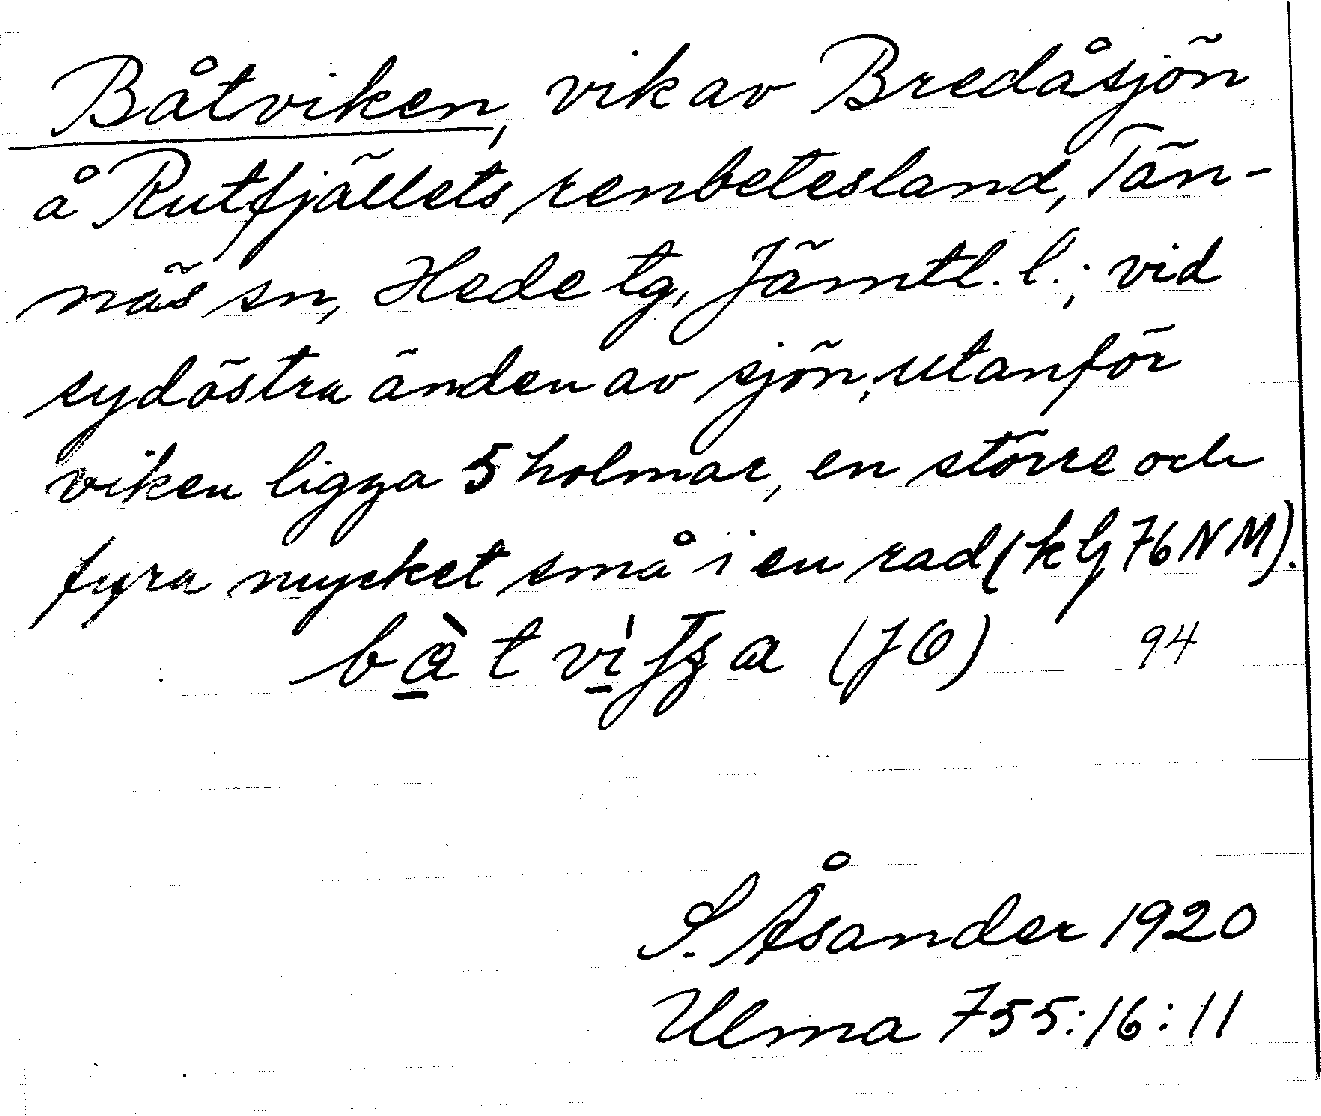 Båtviken, vik av Bredåsjön
å Rutfjällets renbetesland, Tän-
näs sn, Hede tg, Jämtl. l.; vid
sydöstra änden av sjön, utanför
viken ligga 5 holmar, en större och
fyra mycket små i en rad (kbj 76 NM).
(JO) 94
S. Åsander 1920
Ulma 755:16:11